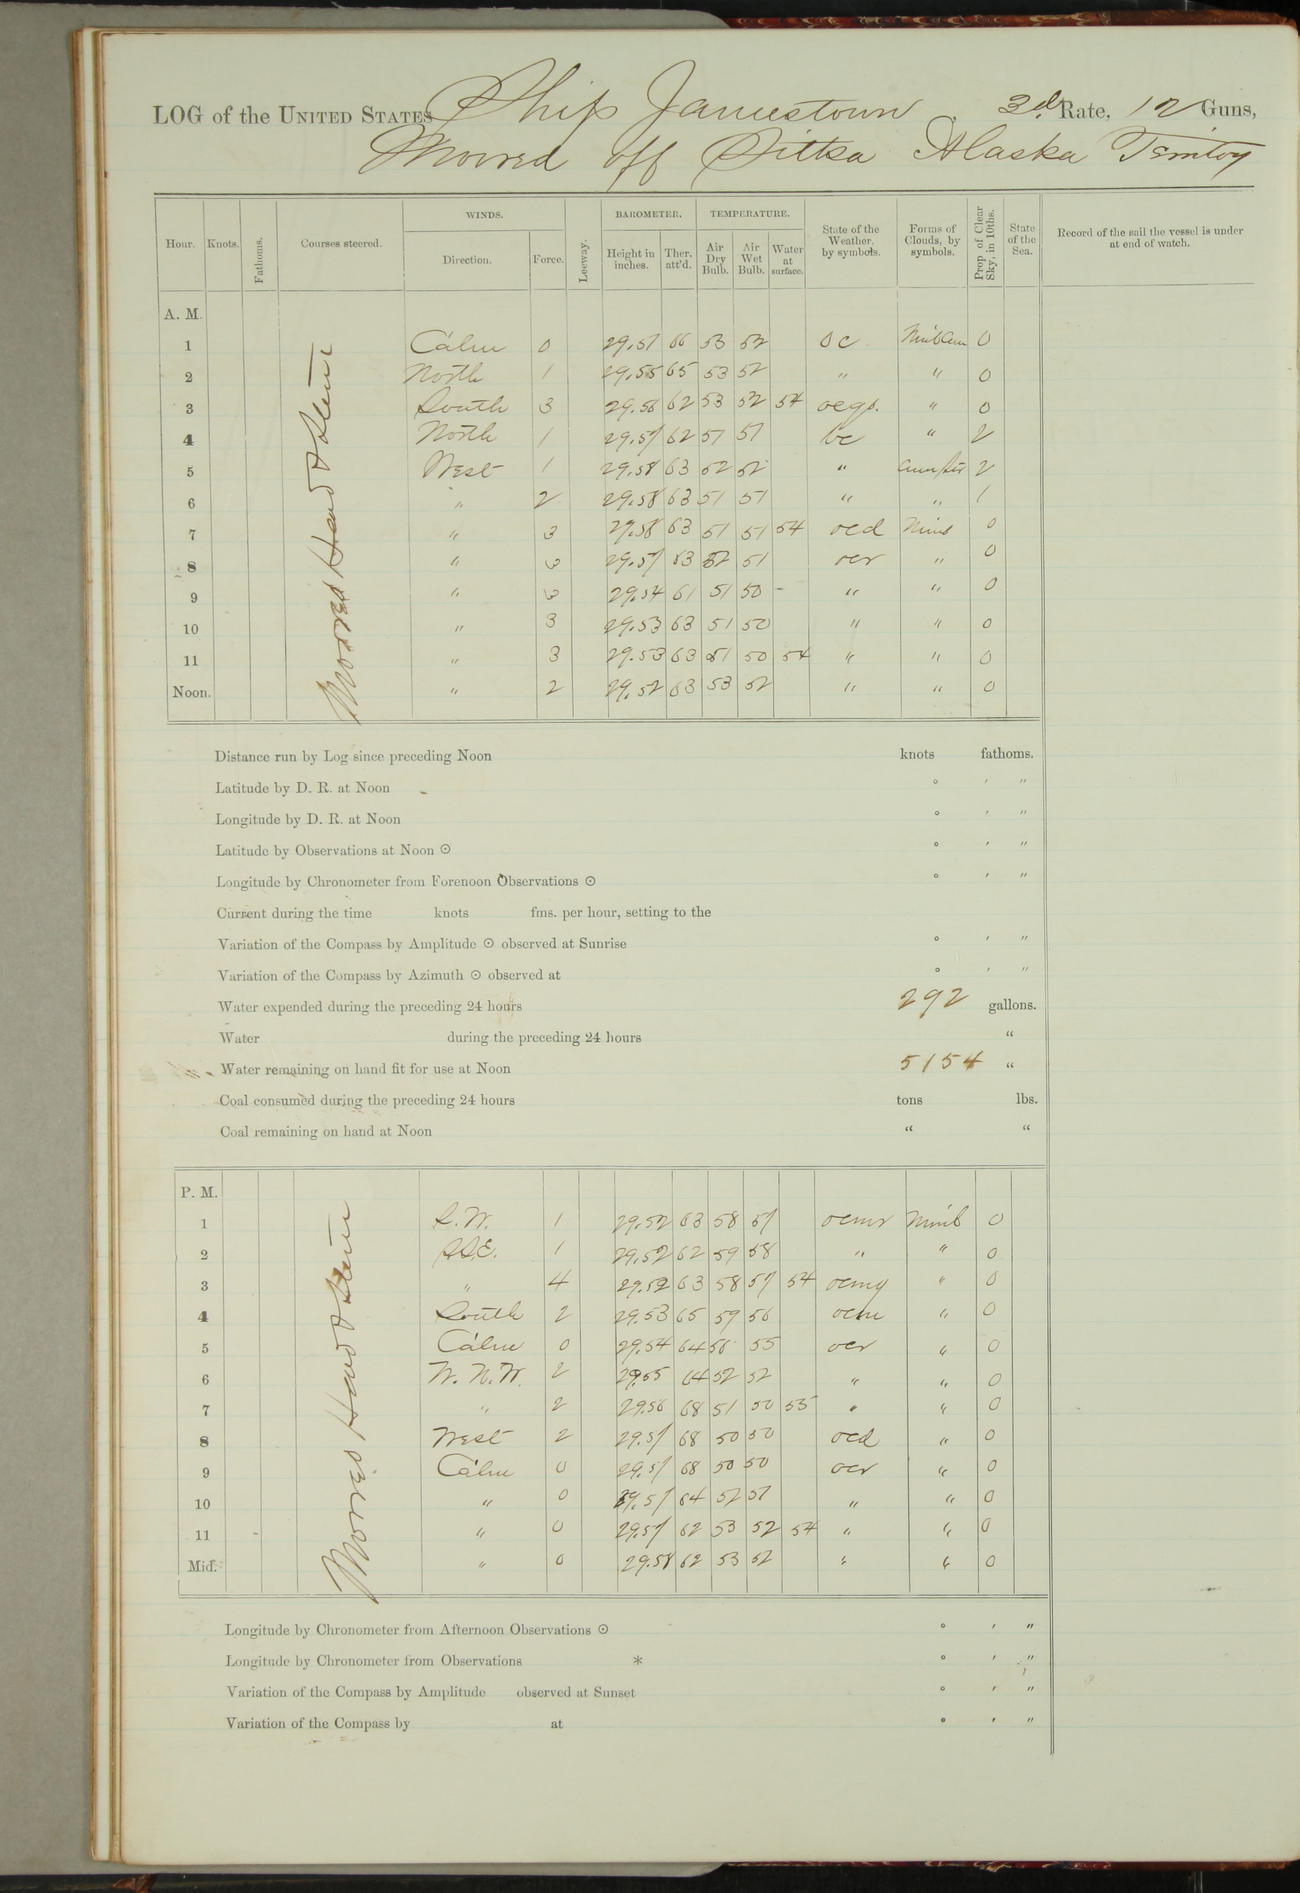 LOG of the UNITED STATES Ship Jamestown, 3d Rate, 12 Guns,
Moored off Sitka Alaska Territoy
Hour. Knots. Fathoms. Courses steered. WINDS. Direction. Force. Leeway. BAROMETER. Height in inches. Ther. att'd. TEMPERATURE. Air Dry Bulb. Air Wet Bulb. Water at surface. State of the Weather, by symbols. Forms of Clouds, by symbols. Prop of Clear Sky, in 10ths. State of the Sea. Record of the sail the vessel is under at end of watch.
A. M.
Moored Head & Stern
1 Calm 0 29.57 66 53 52 oc 0
2 North 1 29.55 65 53 52 " " 0
3 South 3 29.56 62 53 52 54 ocqs. " 0
4 North 1 29.57 62 51 51 bc " 2
5 West 1 29.58 63 52 52 " 2
6 " 2 29.58 63 51 51 " " 1
7 " 3 29.58 63 51 51 54 ocd Nimb 0
8 " 3 29.57 63 52 51 ocr " 0
9 " 3 29.54 61 51 50 - " " 0
10 " 3 29.53 63 51 50 " " 0
11 " 3 29.53 63 51 50 54 " " 0
Noon. " 2 29.52 63 53 52 " " 0
Distance run by Log since preceding Noon knots fathoms.
Latitude by D. R. at Noon ° ' "
Longitude by D. R. at Noon ° ' "
Latitude by Observations at Noon ⊙ ° ' "
Longitude by Chronometer from Forenoon Observations ⊙ ° ' "
Current during the time knots fms. per hour, setting to the
Variation of the Compass by Amplitude ⊙ observed at Sunrise ° ' "
Variation of the Compass by Azimuth ⊙ observed at ° ' "
Water expended during the preceding 24 hours 292 gallons.
Water during the preceding 24 hours "
Water remaining on hand fit for use at Noon 5154 "
Coal consumed during the preceding 24 hours tons lbs.
Coal remaining on hand at Noon " "
P. M.
Moored Head & Stern
1 S.W. 1 29.52 63 58 57 ocmr Nimb 0
2 S.S.E. 1 29.52 62 59 58 " " 0
3 " 4 29.52 63 58 57 54 ocmq " 0
4 South 2 29.53 65 59 56 ocm " 0
5 Calm 0 29.54 64 56 55 ocr " 0
6 W. N. W. 2 29.55 64 52 52 " " 0
7 " 2 29.56 68 51 50 55 " " 0
8 West 2 29.57 68 50 50 ocd " 0
9 Calm 0 29.57 68 50 50 ocr " 0
10 " 0 29.57 64 52 51 " " 0
11 " 0 29.57 62 53 52 54 " " 0
Mid. " 0 29.58 62 53 52 " " 0
Longitude by Chronometer from Afternoon Observations ⊙ ° ' "
Longitude by Chronometer from Observations * ° ' "
Variation of the Compass by Amplitude observed at Sunset ° ' "
Variation of the Compass by at ° ' "